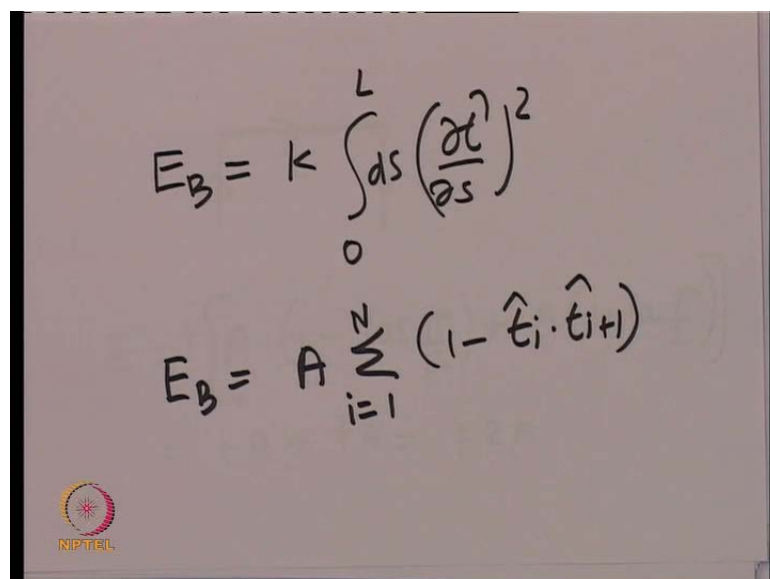 E_B = K ∫_0^L ds (∂t̂/∂s)^2
E_B = A Σ_{i=1}^N (1 - t̂_i · t̂_{i+1})
NPTEL